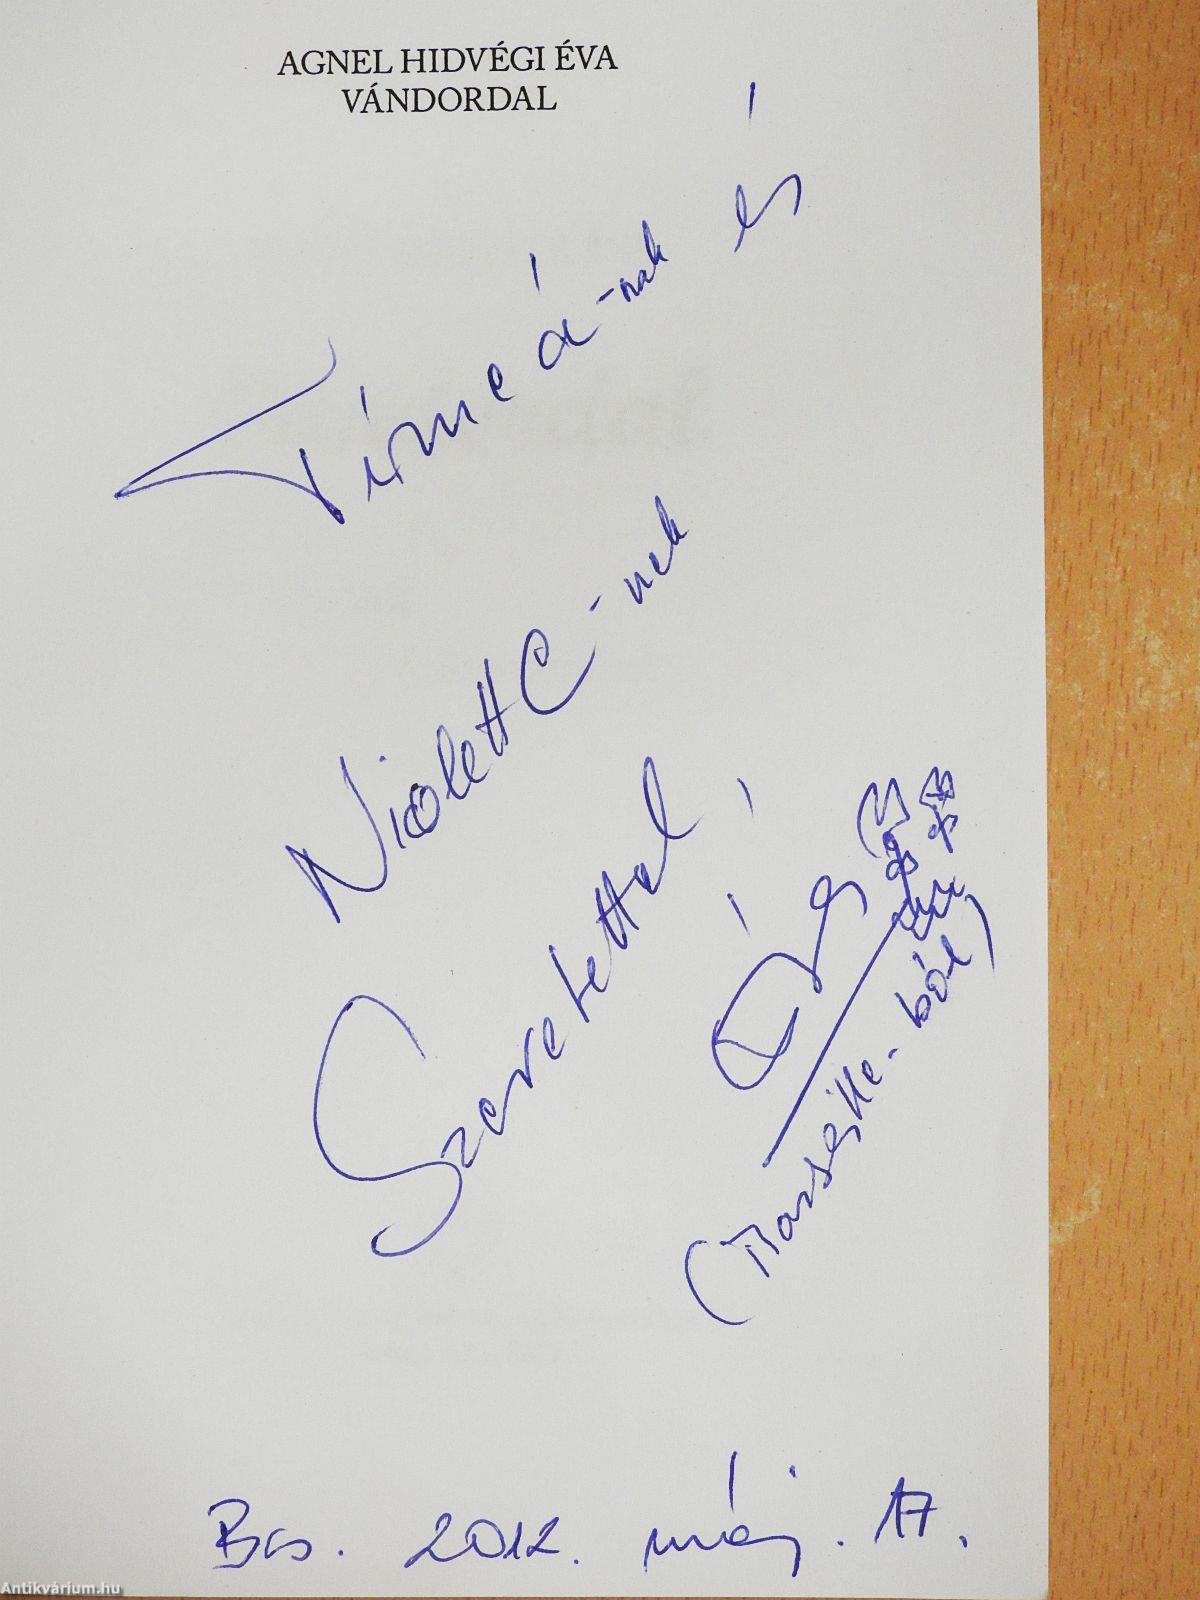 AGNEL HIDVÉGI ÉVA
VÁNDORDAL
Tímeá-nak és
Nicolette-nek
Szeretettel,
Éva
(Marseille-ből)
Bcs. 2012. máj. 17.
Antikvárium.hu